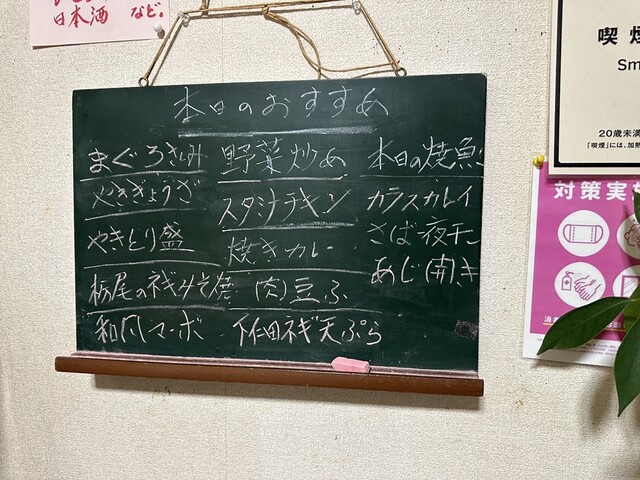 日本酒 など。
本日のおすすめ
まぐろさしみ
焼きぎょうざ
やきとり盛
栃尾のネギみそ焼
和風マーボ
野菜炒め
スタミナチキン
焼きカレー
肉豆ふ
下仁田ネギ天ぷら
本日の焼魚
カラスガレイ
さば夜干
あじ(開き
喫煙
Sm
20歳未満
「喫煙」には、加熱
対策実